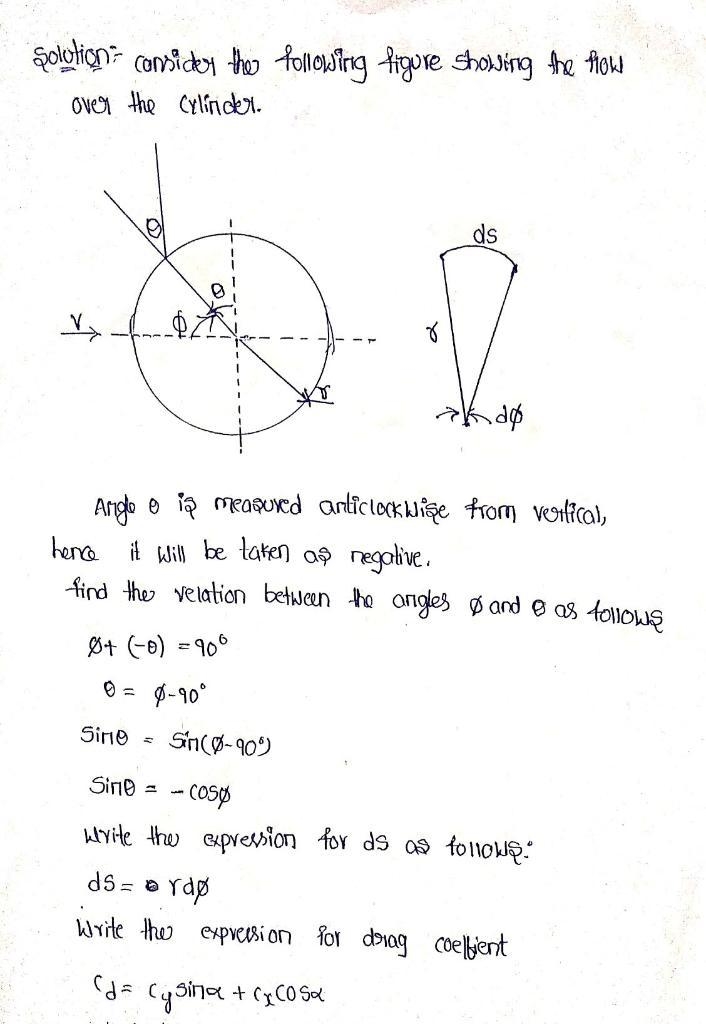 Solution:- consider the following figure showing the flow
over the cylinder.
θ
ds
θ
V
ϕ
r
r
dϕ
Angle θ is measured anticlockwise from vertical,
hence it will be taken as negative.
find the relation between the angles ϕ and θ as follows
ϕ+ (-θ) = 90°
θ = ϕ-90°
Sinθ = Sin(ϕ-90°)
Sinθ = - cosϕ
Write the expression for ds as follows:
ds = rdϕ
Write the expression for drag coefficient
Cd = Cy Sinα + Cx COSα